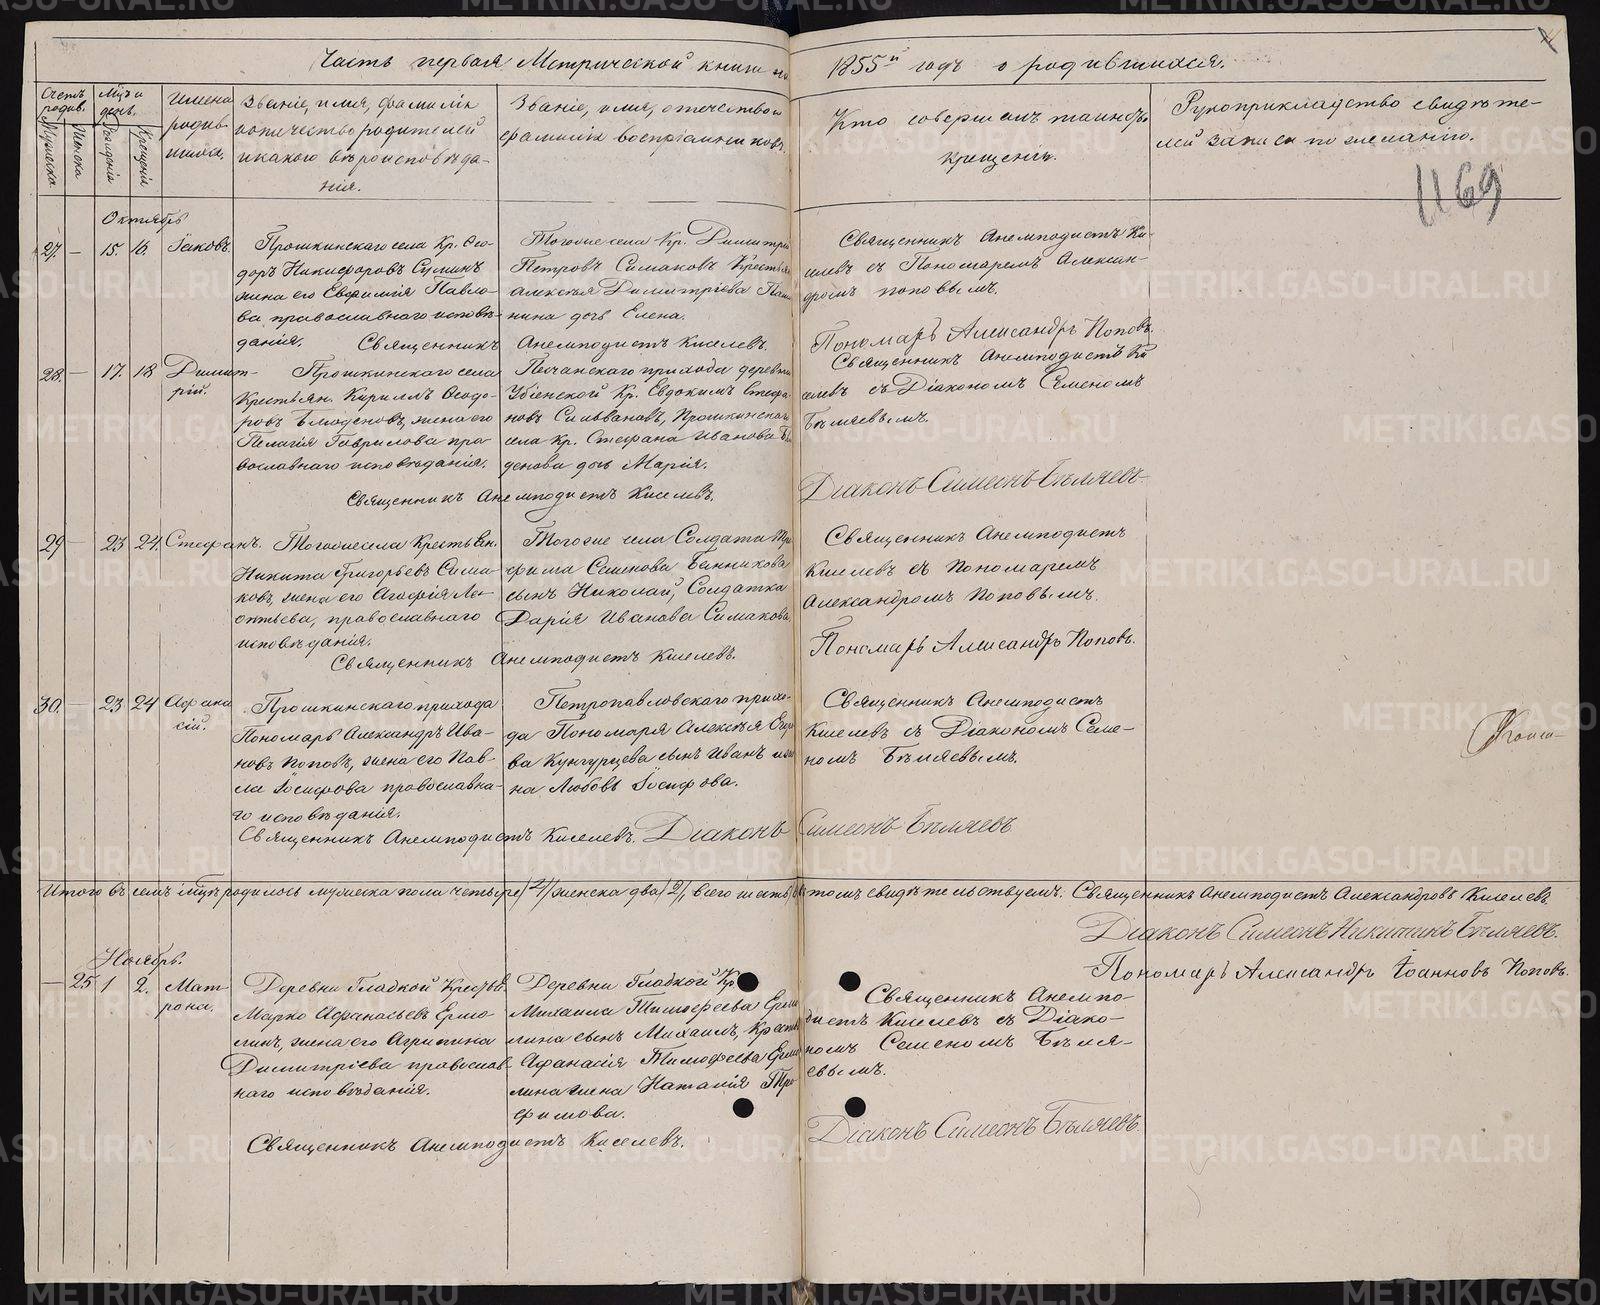 Часть первая Метрической книги на 1855й годъ о родившихся.
Счетъ родив.
Мужеска
Женска
Мцъ и день.
Рожденія
Крещенія
Имена родив-
шихся.
Званіе, имя, фамилія
и отчество родителей
и какого вѣроисповѣда-
нія.
Званіе, имя, отечество и
фамилія воспріемниковъ.
Кто совершалъ таинство
крещенія.
Рукоприкладство свидѣте-
лей записи по желанію.
1169
Октябрь
27. — 15. 16. Іаковъ.
Прошкинскаго села Кр. Ѳео-
доръ Никифоровъ Суминъ
жена его Евфимія Павло-
ва православнаго исповѣ-
данія.
Тогоже села Кр. Димитрій
Петровъ Симаковъ Крестьян
Алексѣя Димитріева
нина дочь Елена.
Священникъ Анемподистъ Киселевъ.
Священникъ Анемподистъ Ки-
селевъ съ Пономаремъ Алексан-
дромъ Поповымъ.
Пономарь Александръ Поповъ.
28. — 17. 18 Димит-
рій.
Прошкинскаго села
Крестьян. Кириллъ Ѳеодо-
ровъ жена его
Пелагія Гаврилова пра-
вославнаго исповѣданія.
Песчанскаго прихода деревни
Убіенской Кр. Евдокимъ Стефа-
новъ Сильвановъ, Прошкинскаго
села Кр. Стефана Иванова
денова дочь Марія.
Священникъ Анемподистъ Киселевъ.
Священникъ Анемподистъ Ки
селевъ съ Діакономъ Семеномъ
Бѣляевымъ.
Діаконъ Симеонъ Бѣляевъ
29 — 23 24. Стефанъ.
Тогоже села Крестьян.
Никита Григорьевъ Сима-
ковъ, жена его Агафія Ле-
онтьева, православнаго
исповѣданія.
Тогоже села Солдата Тро
фима Семенова Банникова
сынъ Николай, Солдатка
Дарія Иванова Симакова.
Священникъ Анемподистъ Киселевъ.
Священникъ Анемподистъ
Киселевъ съ Пономаремъ
Александромъ Поповымъ.
Пономарь Александръ Поповъ.
30. — 23 24 Афана
сій.
Прошкинскаго прихода
Пономарь Александръ Ива-
новъ Поповъ, жена его Пав-
ла Іосифова православна-
го исповѣданія.
Петропавловскаго прихо-
да Пономаря Алексѣя Егоро
ва Кунгурцева сынъ Иванъ и же
на Любовь Іосифова.
Священникъ Анемподистъ Киселевъ. Діаконъ Симеонъ Бѣляевъ
Священникъ Анемподистъ
Киселевъ съ Діакономъ Семе-
номъ Бѣляевымъ.
Итого въ семъ мцѣ родилось мужеска пола четыре /4/ женска два /2/, всего шесть въ томъ свидѣтельствуемъ. Священникъ Анемподистъ Александровъ Киселевъ.
Діаконъ Симеонъ Никитинъ Бѣляевъ.
Пономарь Александръ Іоанновъ Поповъ.
Ноябрь.
— 25 1 2. Мат
рона.
Деревни Гладкой Крестьян.
Марко Афанасьевъ Ермо
линъ, жена его Агрипина
Димитріева православ-
наго исповѣданія.
Деревни Гладкой Кр
Михаила Тимофеева Ермо
лина сынъ Михаилъ, Крест
Афанасія Тимофеева Ермо
лина жена Наталія Тро
фимова.
Священникъ Анемподистъ Киселевъ.
Священникъ Анемпо-
дистъ Киселевъ съ Діако-
номъ Семеномъ Бѣля-
евымъ.
Діаконъ Симеонъ Бѣляевъ.
METRIKI.GASO-URAL.RU